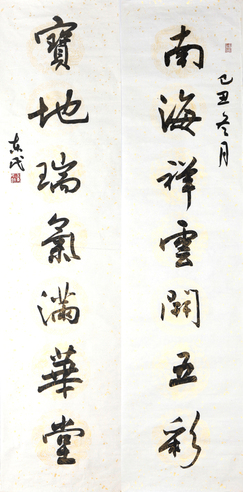 己丑冬月
南海祥雲開五彩
寶地瑞氣滿華堂